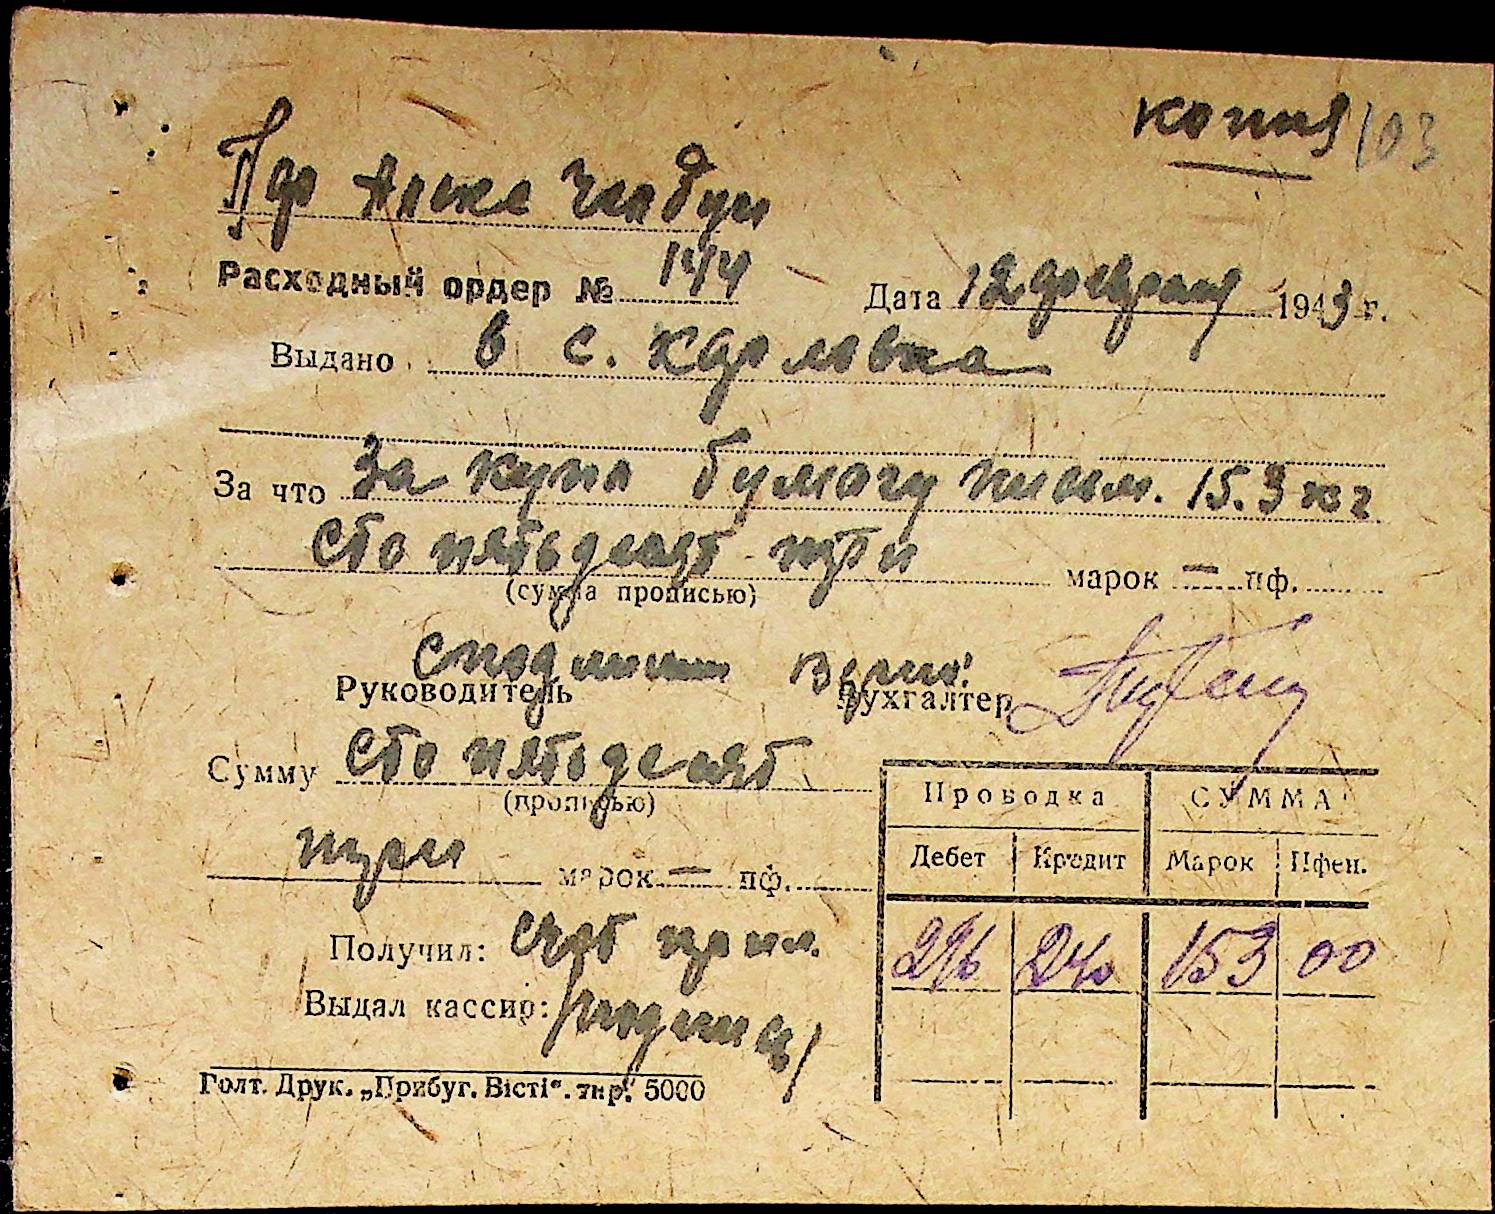 копия 103
Расходный ордер № 144 Дата 12 февраля 1943 г.
Выдано в с. Карловка
За что За купл бумагу письм. 15.3 кг
сто пятьдесят три марок — пф.
(сумма прописью)
С подлинным верно:
Руководитель Бухгалтер
Сумму сто пятьдесят
(прописью)
три марок — пф.
Проводка СУММА
Дебет Кредит Марок Пфен.
296 240 153 00
Получил: счет прил.
Выдал кассир: /подпись/
Голт. Друк. „Прибуг. Вісті“. тир. 5000